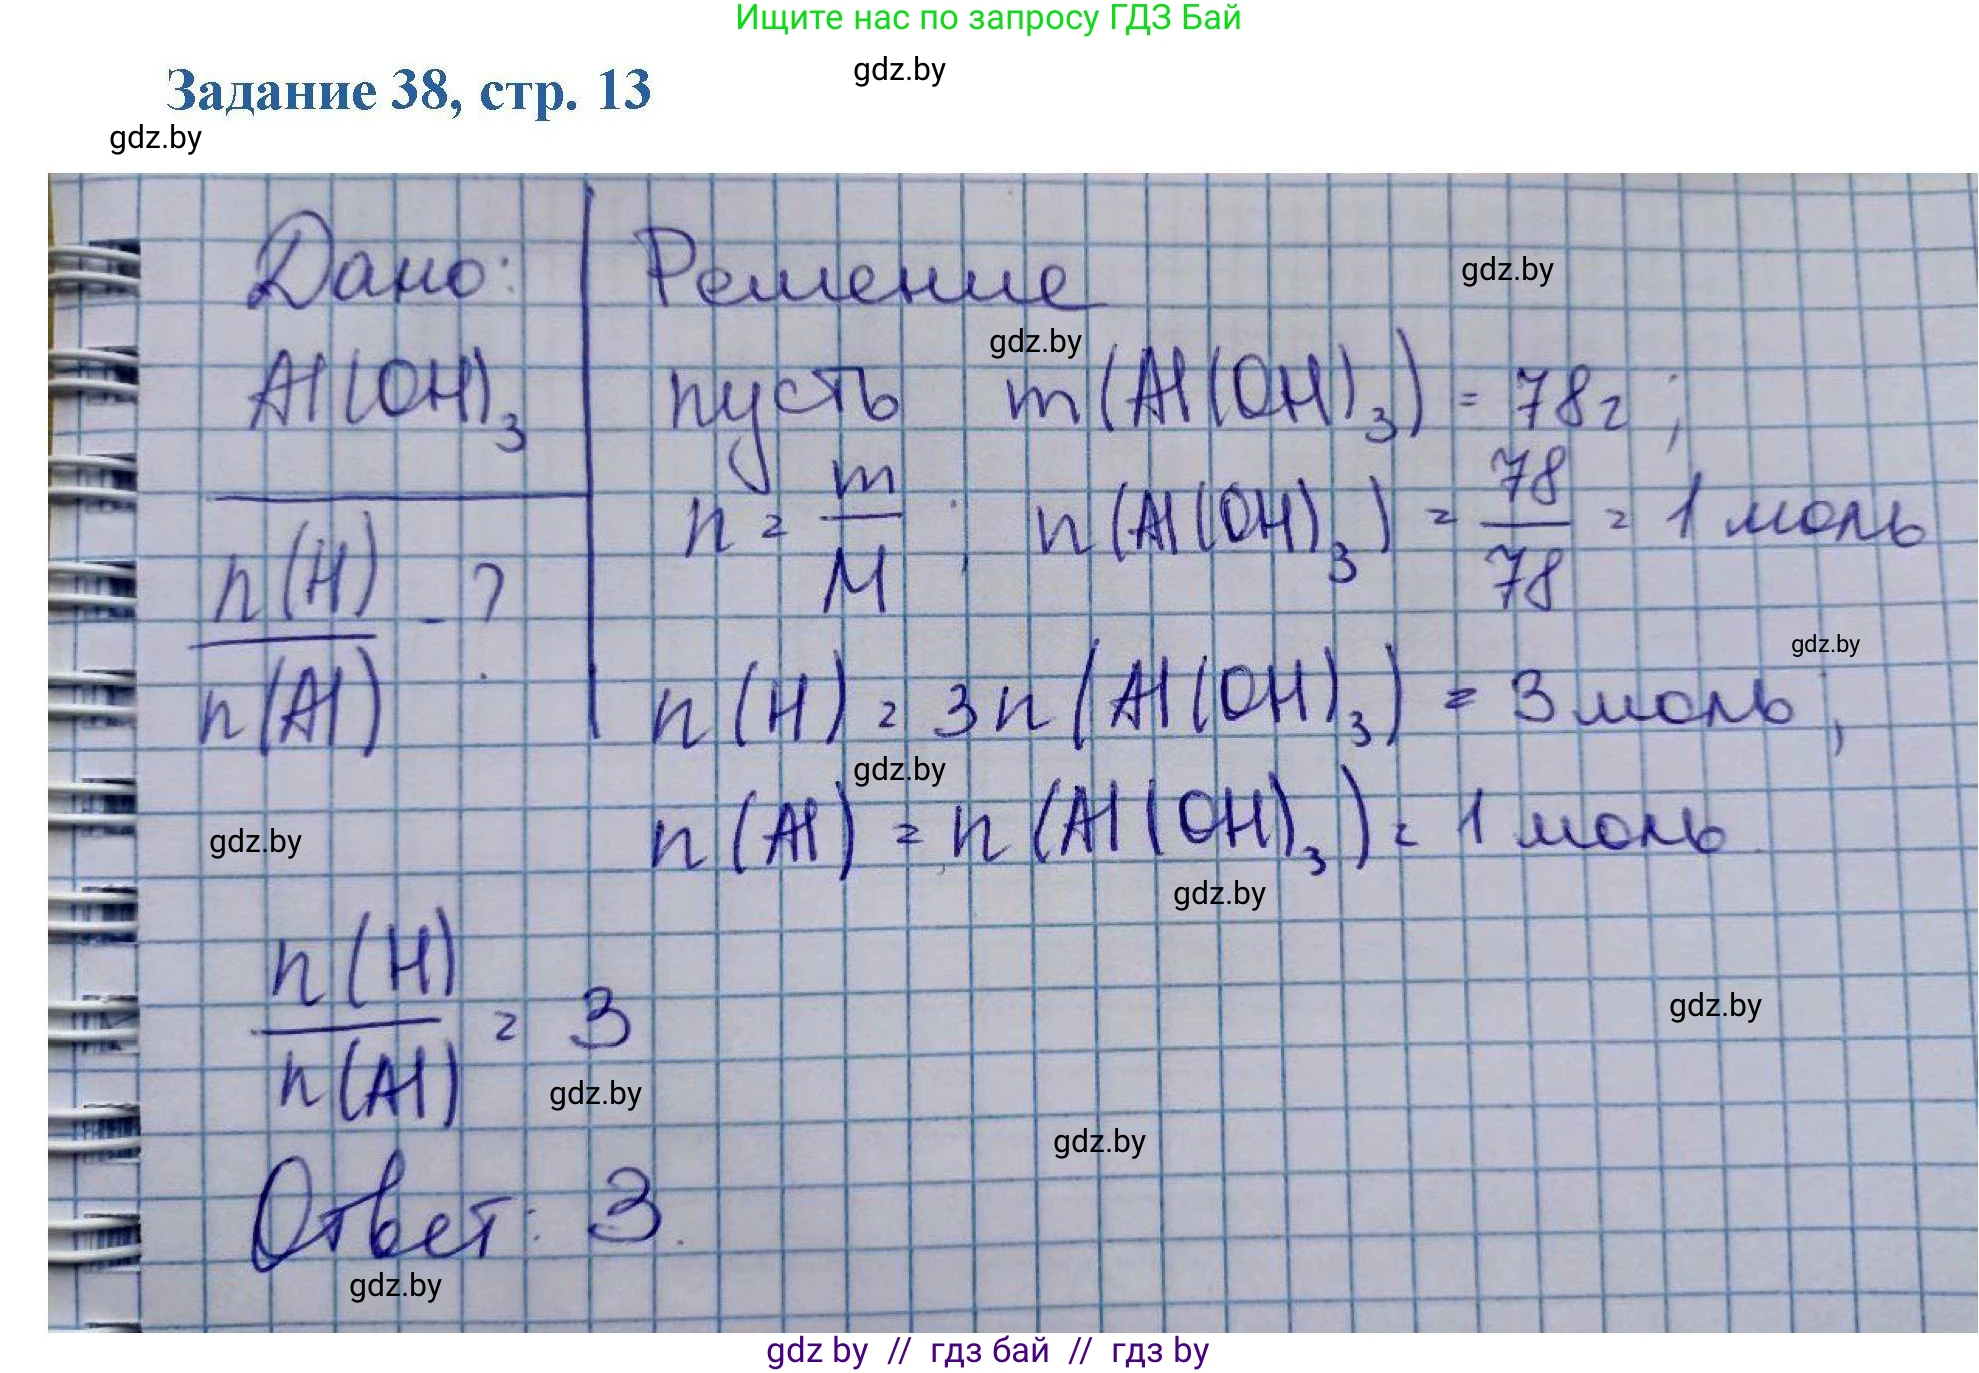 Ищите нас по запросу ГДЗ Бай
gdz.by
Задание 38, стр. 13
gdz.by
Дано:
Al(OH)₃
n(H)/n(Al) - ?
Решение
gdz.by
gdz.by
пусть m(Al(OH)₃) = 78г;
n = m/M; n(Al(OH)₃) = 78/78 = 1 моль
gdz.by
n(H) = 3n(Al(OH)₃) = 3 моль;
gdz.by
n(Al) = n(Al(OH)₃) = 1 моль.
gdz.by
gdz.by
n(H)/n(Al) = 3
gdz.by
gdz.by
gdz.by
Ответ: 3.
gdz.by
gdz by // гдз бай // гдз by